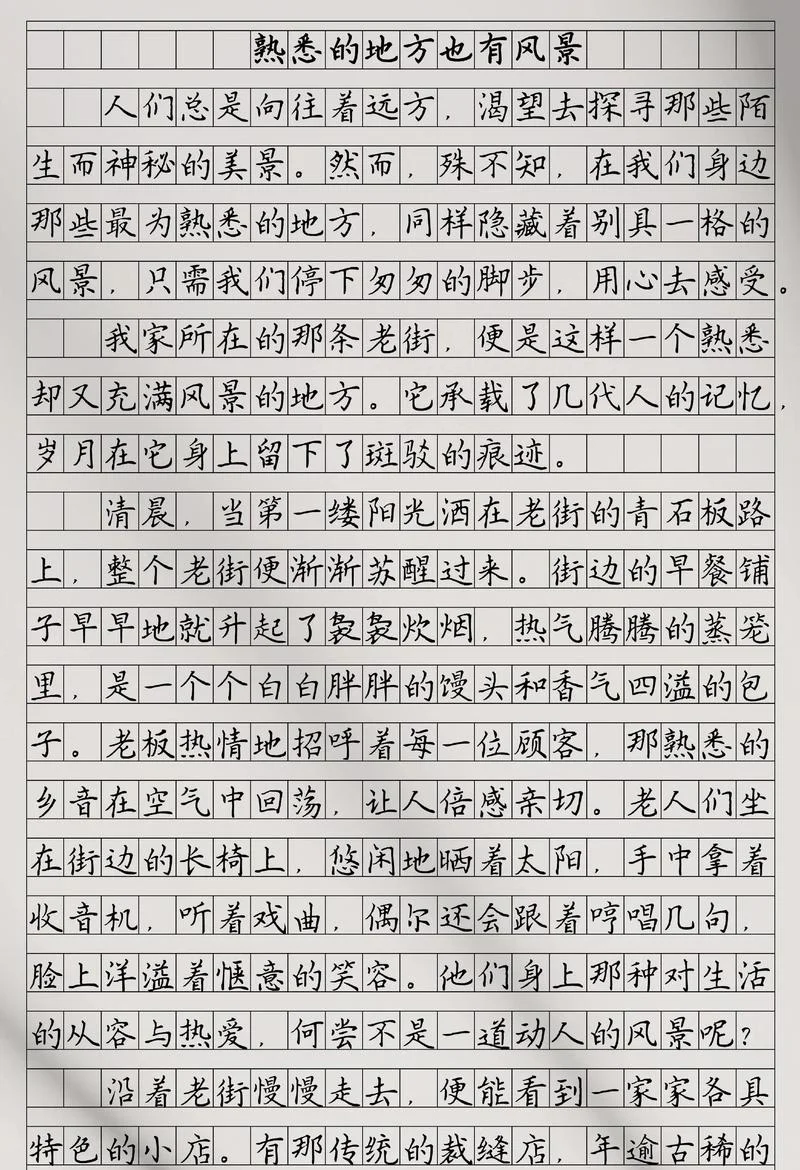 熟悉的地方也有风景
人们总是向往着远方，渴望去探寻那些陌
生而神秘的美景。然而，殊不知，在我们身边
那些最为熟悉的地方，同样隐藏着别具一格的
风景，只需我们停下匆匆的脚步，用心去感受。
我家所在的那条老街，便是这样一个熟悉
却又充满风景的地方。它承载了几代人的记忆，
岁月在它身上留下了斑驳的痕迹。
清晨，当第一缕阳光洒在老街的青石板路
上，整个老街便渐渐苏醒过来。街边的早餐铺
子早早地就升起了袅袅炊烟，热气腾腾的蒸笼
里，是一个个白白胖胖的馒头和香气四溢的包
子。老板热情地招呼着每一位顾客，那熟悉的
乡音在空气中回荡，让人倍感亲切。老人们坐
在街边的长椅上，悠闲地晒着太阳，手中拿着
收音机，听着戏曲，偶尔还会跟着哼唱几句，
脸上洋溢着惬意的笑容。他们身上那种对生活
的从容与热爱，何尝不是一道动人的风景呢？
沿着老街慢慢走去，便能看到一家家各具
特色的小店。有那传统的裁缝店，年逾古稀的